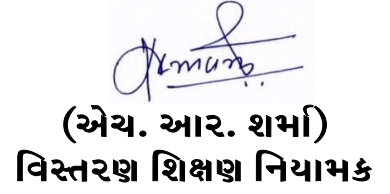 (એચ. આર. શર્મા)
વિસ્તરણ શિક્ષણ નિયામક